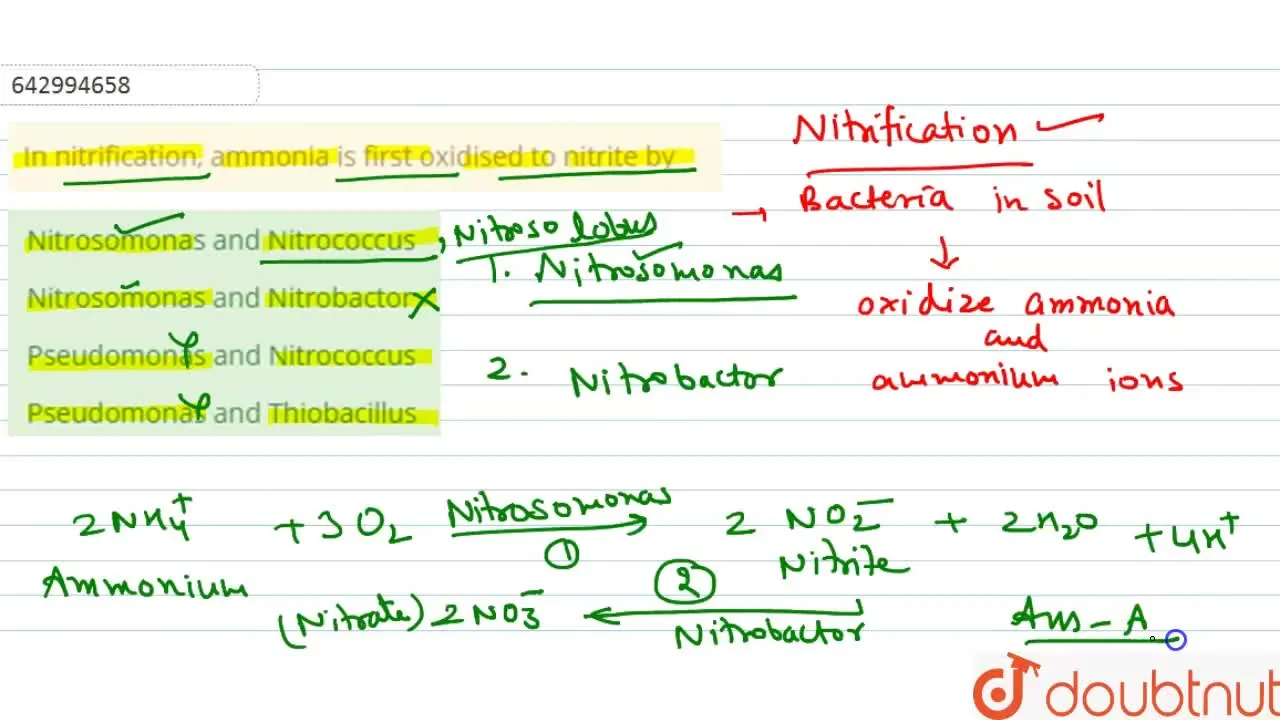 642994658
In nitrification, ammonia is first oxidised to nitrite by
Nitrosomonas and Nitrococcus , Nitroso lobus
Nitrosomonas and Nitrobactor
Pseudomonas and Nitrococcus
Pseudomonas and Thiobacillus
1. Nitrosomonas
2. Nitrobactor
Nitrification
→ Bacteria in soil
↓
oxidize ammonia
and
ammonium ions
2NH₄⁺ + 3O₂ Nitrosomonas → 2 NO₂⁻ + 2H₂O + 4H⁺
①
Ammonium
Nitrite
②
(Nitrate) 2NO₃⁻ ← Nitrobactor
Ans - A
doubtnut